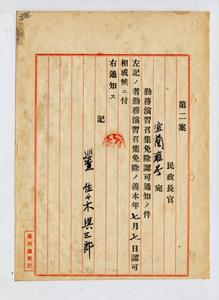 第二案
民政長官
宜蘭廳長宛
勤務演習召集免除認可通知ノ件
左記ノ者勤務演習召集免除ノ義本年七月七日認可
相成候ニ付
右通知ス
記
佐々木與三郎
臺灣總督府